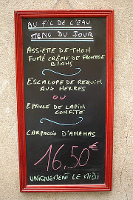 AU FIL DE L'EAU
MENU DU JOUR
ASSIETTE DE THON
FUMÉ CRÈME DE FROMAGE
ESCALOPE DE REQUIN
AUX HERBES
OU
EPAULE DE LAPIN
CONFITE
CARPACCIO D'ANANAS
16,50€
UNIQUEMENT LE MIDI